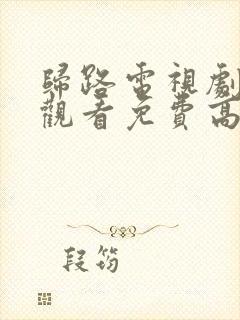 歸路電視劇
觀看免費高
段筠